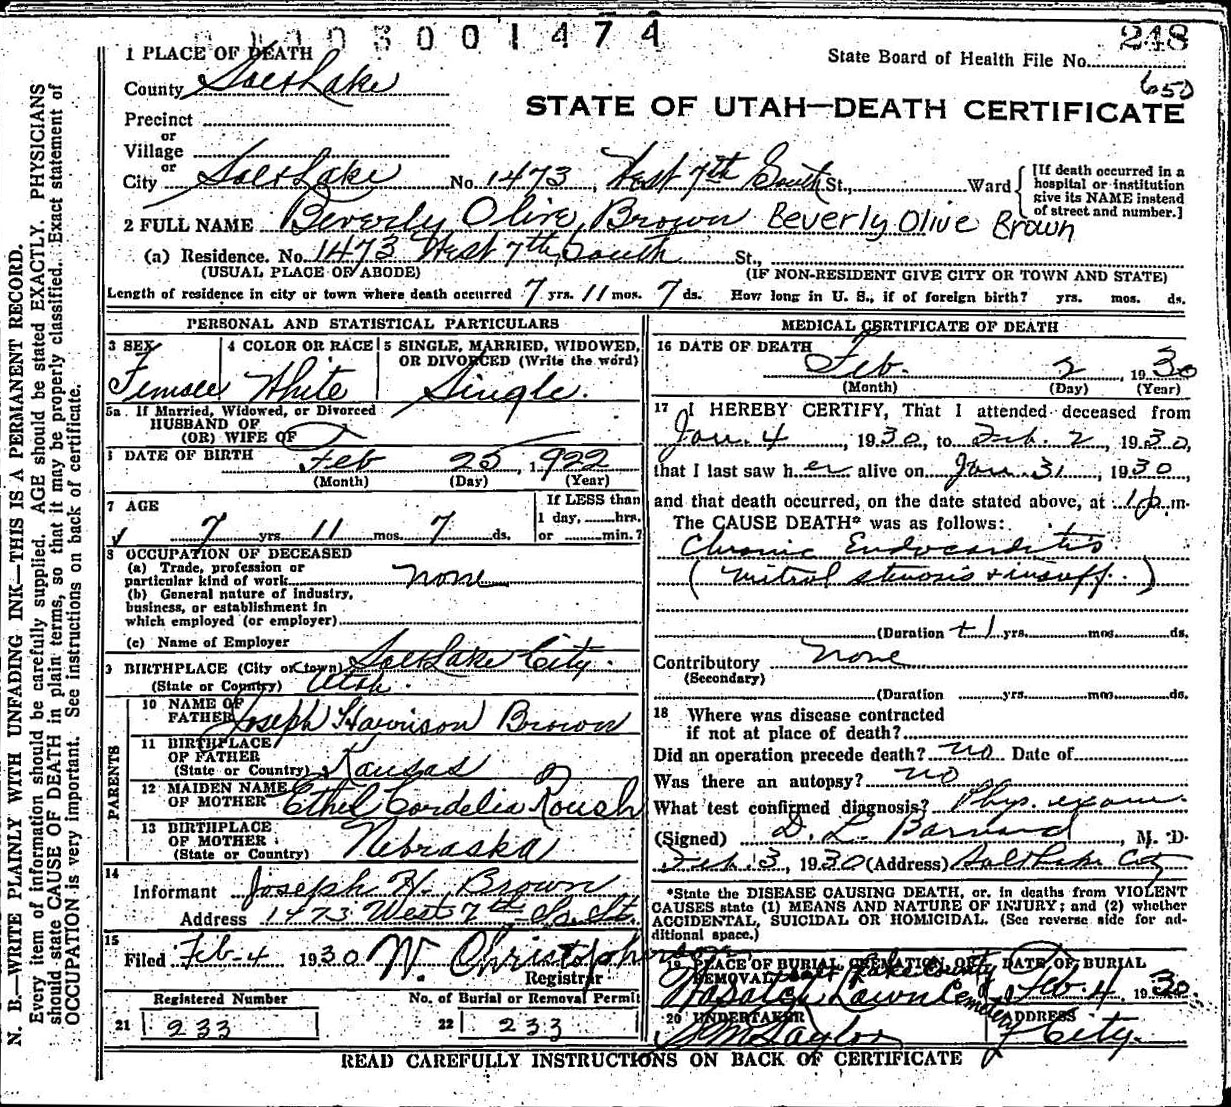 3001474
248
State Board of Health File No.
650
STATE OF UTAH—DEATH CERTIFICATE
1 PLACE OF DEATH
County Salt Lake
Precinct
or
Village
or
City Salt Lake No. 1473, West 7th South St., Ward
[If death occurred in a hospital or institution give its NAME instead of street and number.]
2 FULL NAME Beverly Olive Brown Beverly Olive Brown
(a) Residence. No. 1473 West 7th South St.,
(USUAL PLACE OF ABODE) (IF NON-RESIDENT GIVE CITY OR TOWN AND STATE)
Length of residence in city or town where death occurred 7 yrs. 11 mos. 7 ds. How long in U. S., if of foreign birth? yrs. mos. ds.
PERSONAL AND STATISTICAL PARTICULARS
3 SEX 4 COLOR OR RACE 5 SINGLE, MARRIED, WIDOWED, OR DIVORCED (Write the word)
Female White Single.
5a If Married, Widowed, or Divorced
HUSBAND OF
(OR) WIFE OF
DATE OF BIRTH Feb 25, 1922
(Month) (Day) (Year)
7 AGE If LESS than
1 day, hrs.
7 yrs. 11 mos. 7 ds. or min.?
8 OCCUPATION OF DECEASED
(a) Trade, profession or
particular kind of work none
(b) General nature of industry,
business, or establishment in
which employed (or employer)
(c) Name of Employer
9 BIRTHPLACE (City or town) Salt Lake City.
(State or Country) Utah.
PARENTS
10 NAME OF
FATHER Joseph Harrison Brown
11 BIRTHPLACE
OF FATHER
(State or Country) Kansas
12 MAIDEN NAME
OF MOTHER Ethel Cordelia Roush
13 BIRTHPLACE
OF MOTHER
(State or Country) Nebraska
14
Informant Joseph H. Brown
Address 1473 West 7th So. St.
15
Filed Feb-4 1930 W. Christopherson
Registrar
Registered Number No. of Burial or Removal Permit
21 233 22 233
MEDICAL CERTIFICATE OF DEATH
16 DATE OF DEATH
Feb. 2, 1930
(Month) (Day) (Year)
17 I HEREBY CERTIFY, That I attended deceased from
Jan. 4, 1930, to Feb. 2, 1930,
that I last saw her alive on Jan. 31, 1930
and that death occurred, on the date stated above, at 1 p.m.
The CAUSE DEATH* was as follows:
Chronic Endocarditis
(mitral stenosis + insuff.)
(Duration + 1 yrs. mos. ds.
Contributory none
(Secondary)
(Duration yrs. mos. ds.
18 Where was disease contracted
if not at place of death?
Did an operation precede death? no Date of
Was there an autopsy? no
What test confirmed diagnosis? Phys. exam.
(Signed) D. L. Barnard, M. D.
Feb. 3, 1930 (Address) Salt Lake City
*State the DISEASE CAUSING DEATH, or, in deaths from VIOLENT
CAUSES state (1) MEANS AND NATURE OF INJURY; and (2) whether
ACCIDENTAL, SUICIDAL OR HOMICIDAL. (See reverse side for ad-
ditional space.)
19 PLACE OF BURIAL CREMATION OR DATE OF BURIAL
REMOVAL Salt Lake County
Wasatch Lawn Cemetery Feb. 4 1930.
20 UNDERTAKER ADDRESS
S. M. Taylor City.
READ CAREFULLY INSTRUCTIONS ON BACK OF CERTIFICATE
N. B.—WRITE PLAINLY WITH UNFADING INK—THIS IS A PERMANENT RECORD.
Every item of information should be carefully supplied. AGE should be stated EXACTLY. PHYSICIANS
should state CAUSE OF DEATH in plain terms, so that it may be properly classified. Exact statement of
OCCUPATION is very important. See instructions on back of certificate.